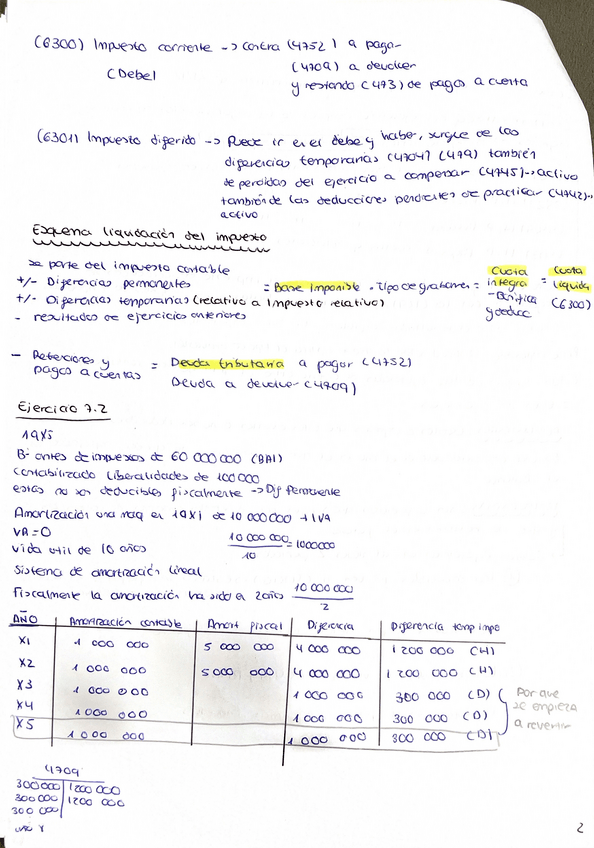 (6300) Impuesto corriente -> contra (4752) a pagar
(Debe) (4709) a devolver
y restando (473) de pagos a cuenta
(6301) Impuesto diferido -> Puede ir en el debe y haber, surge de las
diferencias temporarias (4740) (479) también
de perdidas del ejercicio a compensar (4745) -> activo
también de las deducciones pendientes de practicar (4742) ->
activo
Esquema liquidación del impuesto
se parte del impuesto contable
+/- Diferencias permanentes = Base Imponible . Tipo de gratamen = Cuota integra = Cuota líquida
+/- Diferencias temporarias (relativo a Impuesto relativo) - Bonifica y deducc (6300)
- resultados de ejercicios anteriores
- Retenciones y pagos a cuentas = Deuda tributaria a pagar (4752)
Deuda a devolver (4709)
Ejercicio 7.2
19X5
Bº antes de impuestos de 60 000 000 (BAI)
contabilizado liberalidades de 100 000
estas no son deducibles fiscalmente -> Dif Permanente
Amortización una maq en 19X1 de 10 000 000 + IVA
VR = 0
vida util de 10 años 10 000 000 / 10 = 1000000
Sistema de amortización lineal
Fiscalmente la amortización ha sido en 2 años 10 000 000 / 2
AÑO Amortización contable Amort fiscal Diferencia Diferencia temp impo
X1 1 000 000 5 000 000 4 000 000 1 200 000 (H)
X2 1 000 000 5 000 000 4 000 000 1 200 000 (H)
X3 1 000 000 1 000 000 300 000 (D)
X4 1 000 000 1 000 000 300 000 (D)
X5 1 000 000 1 000 000 300 000 (D)
Por que
se empieza
a revertir
4709
300 000 1200 000
300 000 1200 000
300 000
2